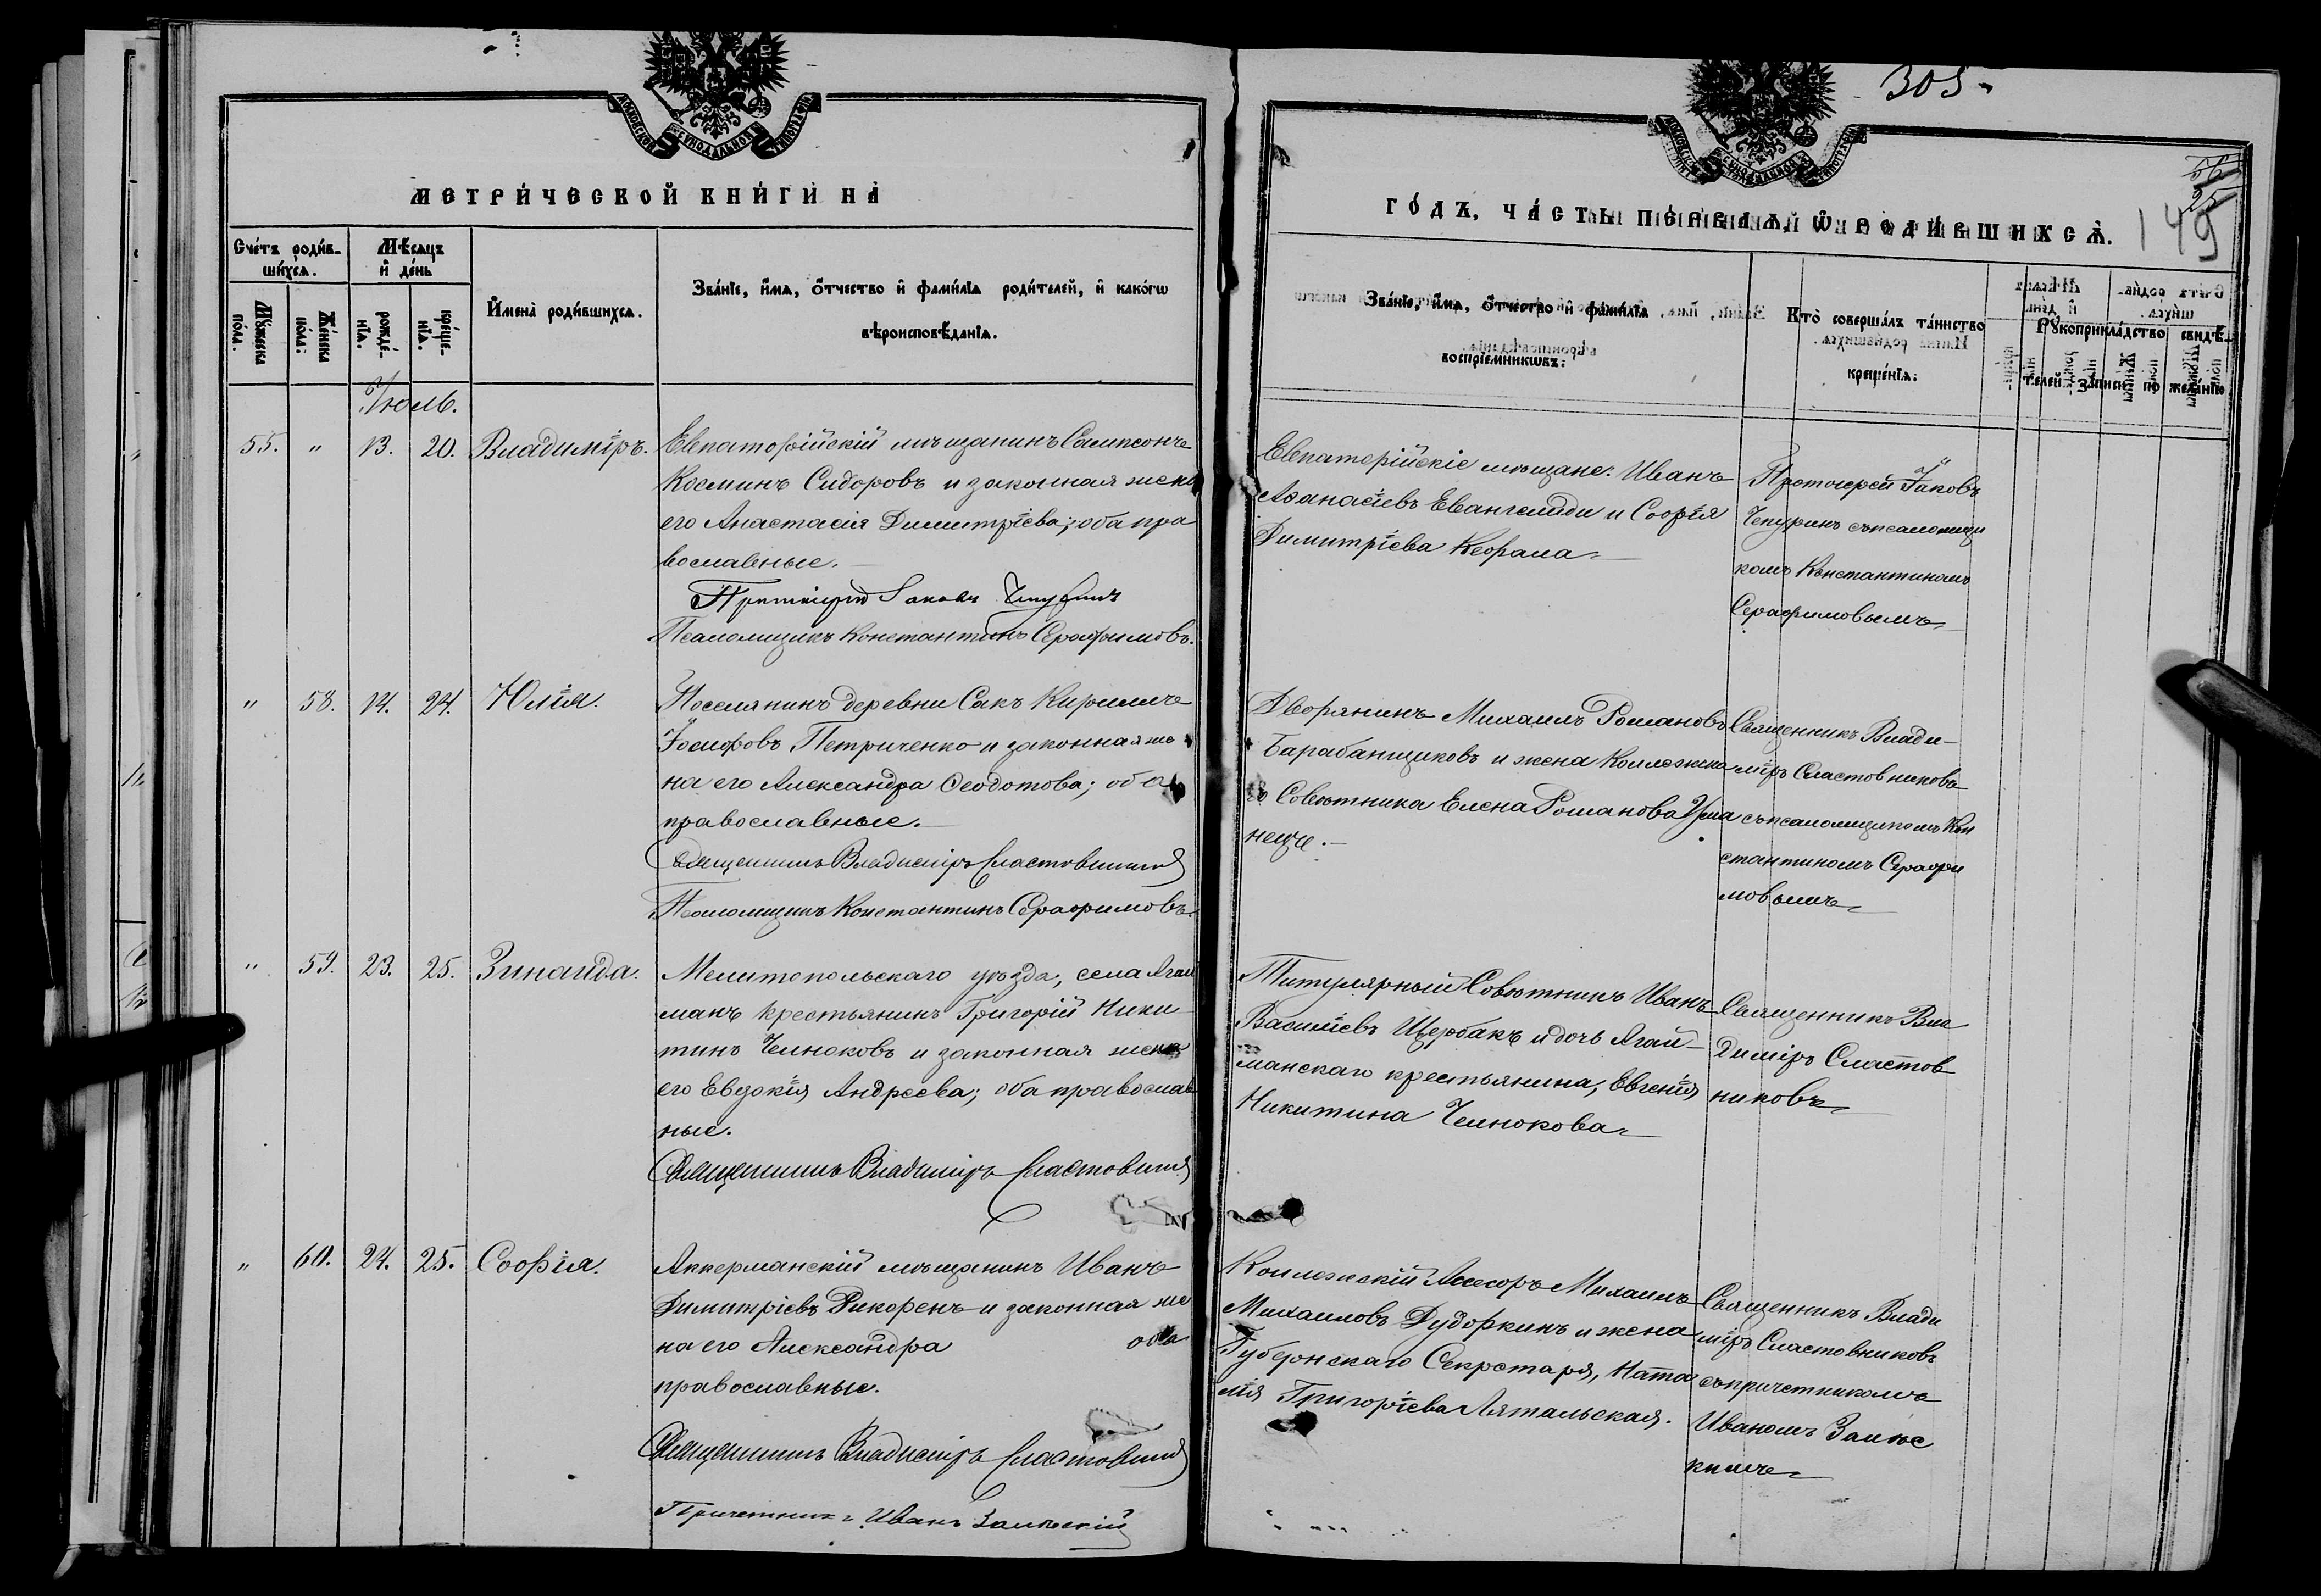 305
149
МЕТРИЧЕСКОЙ КНИГИ НА
ГОДЪ, ЧАСТЬ ПЕРВАЯ, О РОДИВШИХСЯ.
Счетъ родив-
шихся.
Мужеска
пола.
Женска
пола:
Мѣсяцъ
и день
рожде-
нія.
креще-
нія.
Имена родившихся.
Званіе, имя, отчество и фамилія родителей, и какого
вѣроисповѣданія.
Званіе, имя, отчество и фамилія
воспріемниковъ:
Кто совершалъ таинство
крещенія:
Рукоприкладство свидѣ-
телей записи по желанію
Іюль.
55. " 13. 20. Владиміръ.
Евпаторійскій мѣщанинъ Сампсонъ
Косминъ Сидоровъ и законная жена
его Анастасія Димитріева; оба пра
вославные.
Протоіерей Іаковъ Чепуринъ
Псаломщикъ Константинъ Серафимовъ.
Евпаторійскіе мѣщане: Иванъ
Аѳанасіевъ Евангелиди и Софія
Димитріева Кефала
Протоіерей Іаковъ
Чепуринъ съ псаломщи
комъ Константиномъ
Серафимовымъ
" 58. 14. 24. Юлія.
Поселянинъ деревни Сакъ Кириллъ
Іосифовъ Петриченко и законная же
на его Александра Ѳеодотова; оба
православные.
Священникъ Владиміръ Сластовников
Псаломщикъ Константинъ Серафимовъ.
Дворянинъ Михаилъ Романовъ
Барабанщиковъ и жена Коллежска
го Совѣтника Елена Романова
нецъ.
Священникъ Влади-
міръ Сластовниковъ
съ псаломщикомъ Кон
стантиномъ Серафи
мовымъ
" 59. 23. 25. Зинаида.
Мелитопольскаго уѣзда, села Агай
манъ крестьянинъ Григорій Ники
тинъ Челноковъ и законная жена
его Евдокія Андреева; оба православ
ные.
Священникъ Владиміръ Сластовников
Титулярный Совѣтникъ Иванъ
Василіевъ Щербакъ и дочь Агай-
манскаго крестьянина, Евгенія
Никитина Челнокова
Священникъ Вла
диміръ Сластов
никовъ
" 60. 24. 25. Софія.
Аккерманскій мѣщанинъ Иванъ
Димитріевъ Рикоренъ и законная же
на его Александра оба
православные.
Священникъ Владиміръ Сластовников
Причетникъ Иванъ Залѣскій
Коллежскій Асесоръ Михаилъ
Михаиловъ Дудоркинъ и жена
Губернскаго Секретаря, Ната
лія Григоріева Лятальская.
Священникъ Влади
міръ Сластовниковъ
съ причетникомъ
Иваномъ Залѣс
кимъ